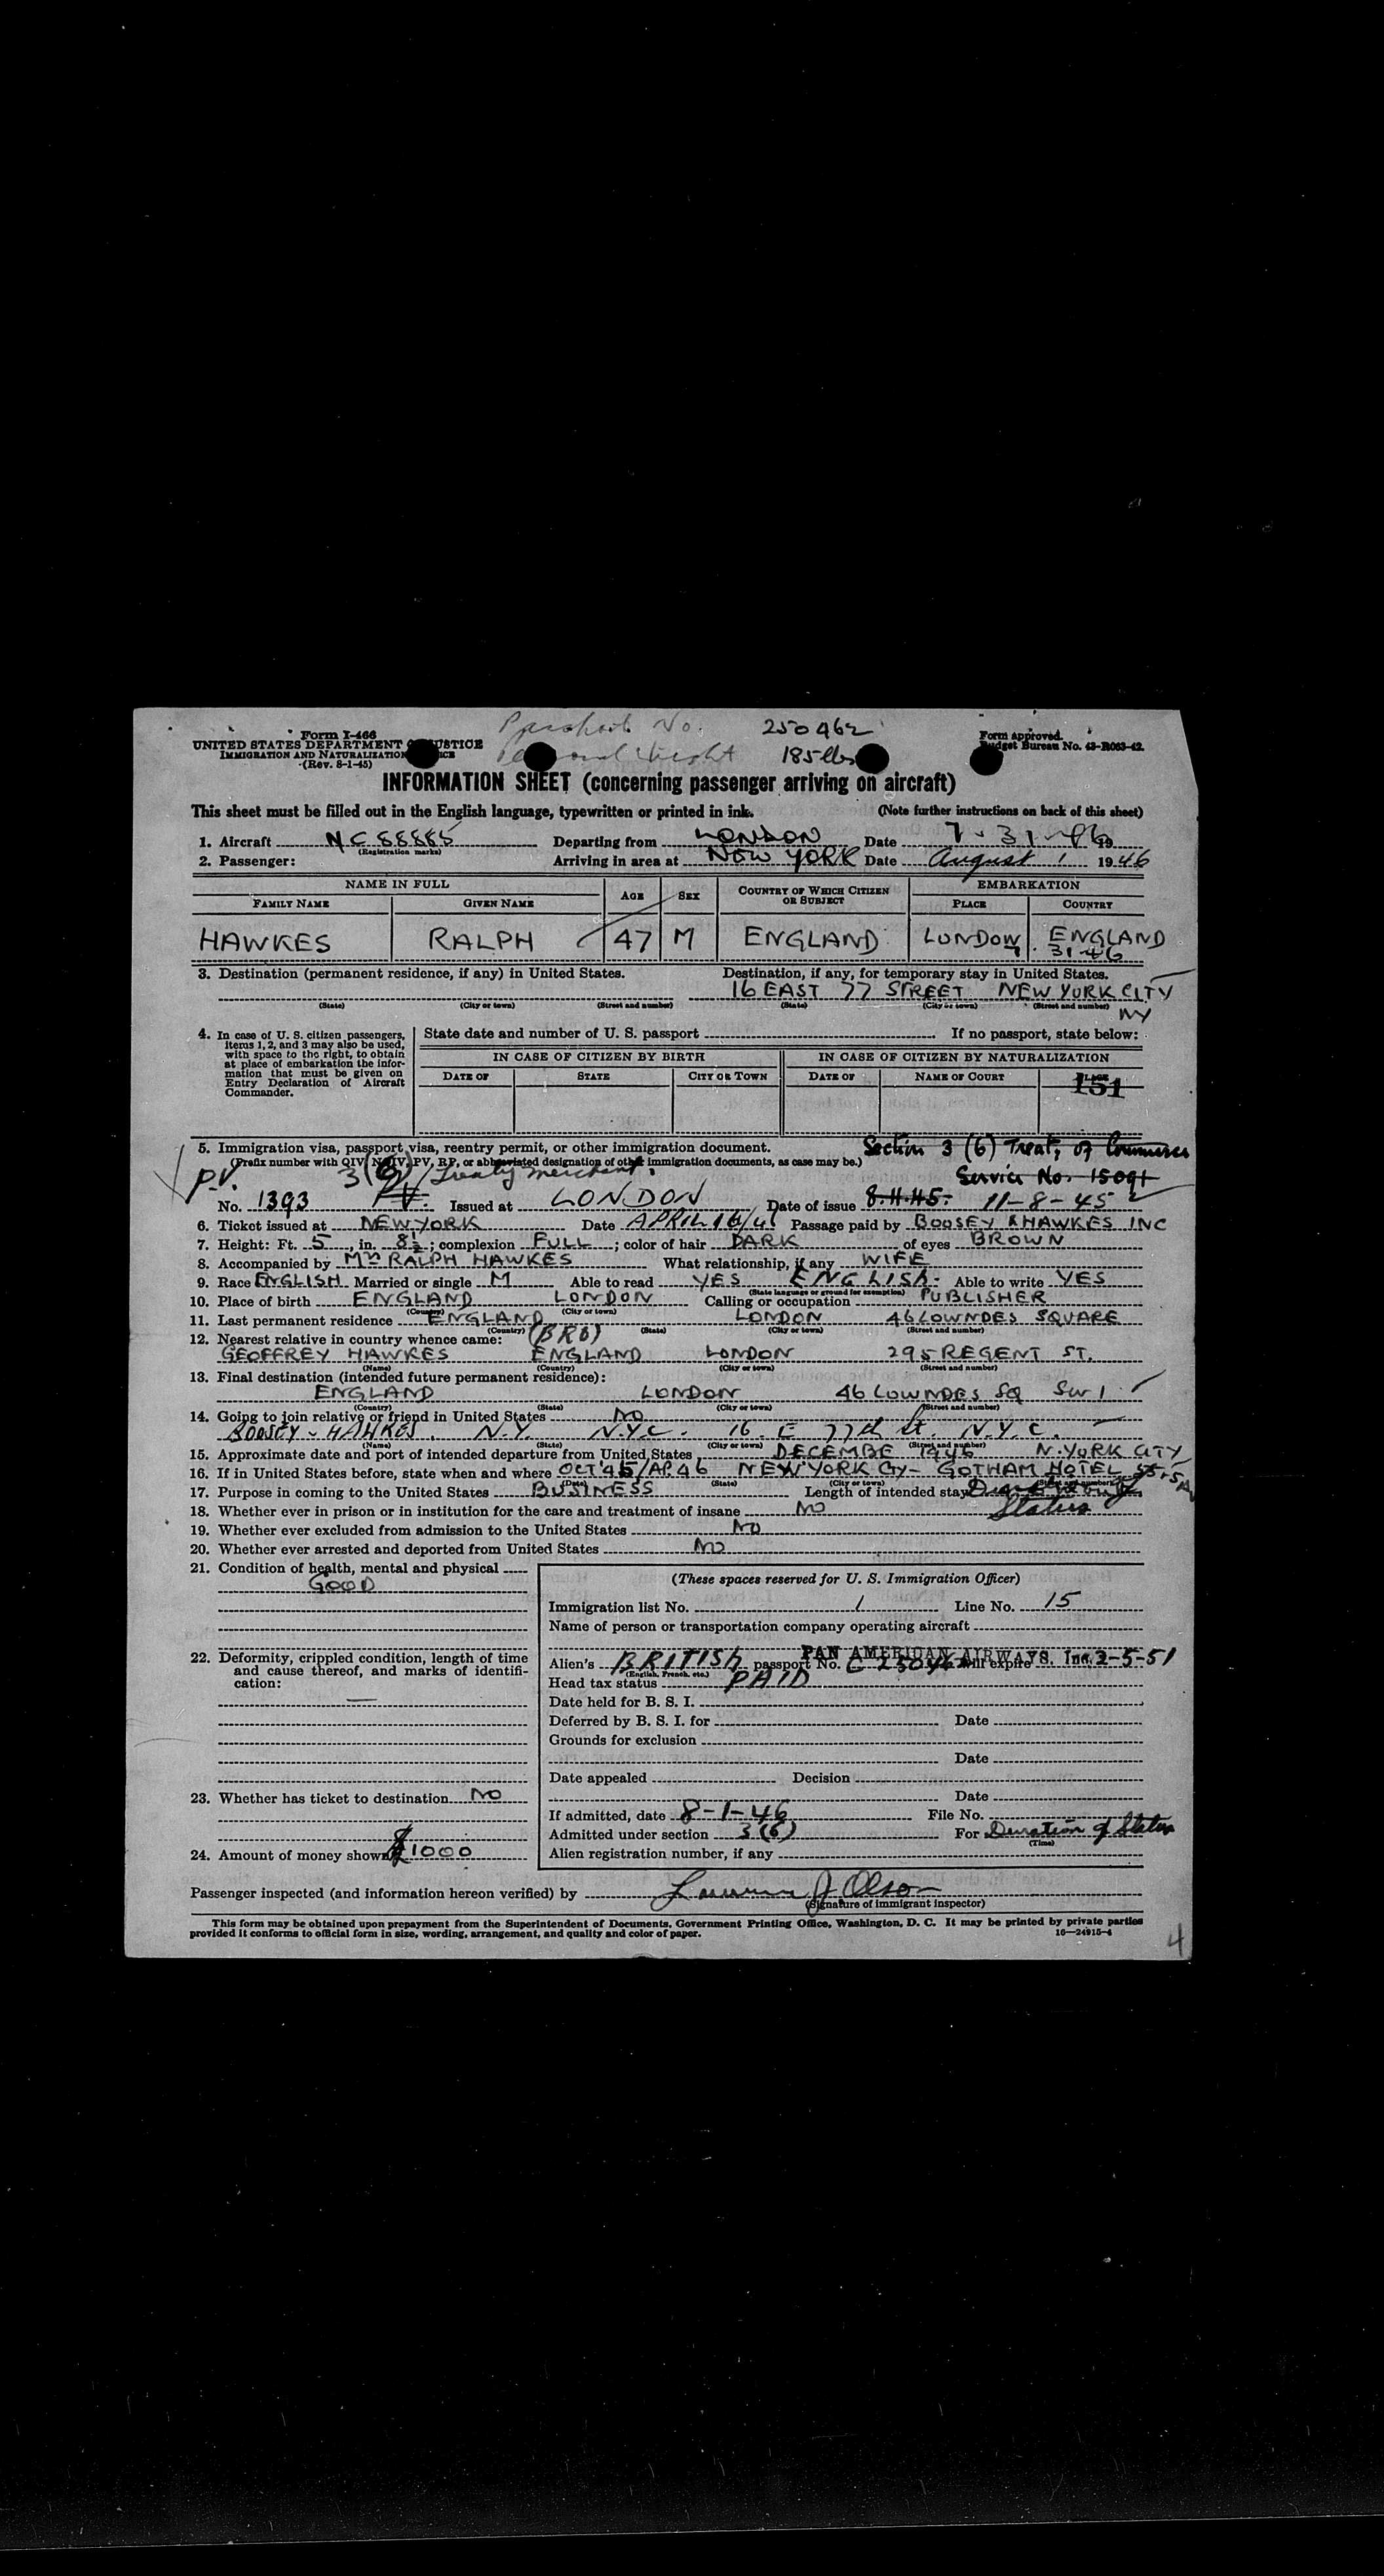 Passport No. 250462
Personal Weight 185 lbs
Form I-466
UNITED STATES DEPARTMENT OF JUSTICE
IMMIGRATION AND NATURALIZATION SERVICE
(Rev. 8-1-45)
Form approved.
Budget Bureau No. 43-R063-42.
INFORMATION SHEET (concerning passenger arriving on aircraft)
This sheet must be filled out in the English language, typewritten or printed in ink. (Note further instructions on back of this sheet)
1. Aircraft NC88885 Departing from LONDON Date 7-31-46 19
(Registration marks)
2. Passenger: Arriving in area at NEW YORK Date August 1 1946
NAME IN FULL AGE SEX COUNTRY OF WHICH CITIZEN OR SUBJECT EMBARKATION
FAMILY NAME GIVEN NAME PLACE COUNTRY
HAWKES RALPH 47 M ENGLAND LONDON ENGLAND
7.31.46
3. Destination (permanent residence, if any) in United States. Destination, if any, for temporary stay in United States.
16 EAST 77 STREET NEW YORK CITY
(State) (City or town) (Street and number) (State) (City or town) (Street and number)
NY
4. In case of U. S. citizen passengers, items 1, 2, and 3 may also be used, with space to the right, to obtain at place of embarkation the information that must be given on Entry Declaration of Aircraft Commander.
State date and number of U. S. passport If no passport, state below:
IN CASE OF CITIZEN BY BIRTH IN CASE OF CITIZEN BY NATURALIZATION
DATE OF STATE CITY OR TOWN DATE OF NAME OF COURT PLACE
151
5. Immigration visa, passport visa, reentry permit, or other immigration document. Section 3 (6) Treaty of Commerce
(Prefix number with QIV, NQIV, PV, RP, or abbreviated designation of other immigration documents, as case may be.)
P.V. 3(6) Treaty merchant. Service No. 15091
No. 1393 PV. Issued at LONDON Date of issue 8.11.45. 11-8-45
6. Ticket issued at NEW YORK Date APRIL 16/46 Passage paid by BOOSEY & HAWKES INC
7. Height: Ft. 5, in. 8½; complexion FULL; color of hair DARK of eyes BROWN
8. Accompanied by MRS RALPH HAWKES What relationship, if any WIFE
9. Race ENGLISH Married or single M Able to read YES ENGLISH. Able to write YES
(State language or ground for exemption)
10. Place of birth ENGLAND LONDON Calling or occupation PUBLISHER
(Country) (City or town)
11. Last permanent residence ENGLAND LONDON 46 LOWNDES SQUARE
(Country) (State) (City or town) (Street and number)
12. Nearest relative in country whence came: (BRO)
GEOFFREY HAWKES ENGLAND LONDON 295 REGENT ST.
(Name) (Country) (City or town) (Street and number)
13. Final destination (intended future permanent residence):
ENGLAND LONDON 46 LOWNDES SQ SW1.
(Country) (State) (City or town) (Street and number)
14. Going to join relative or friend in United States NO
BOOSEY - HAWKES. N.Y. N.Y.C. 16. E 77th St. N.Y.C.
(Name) (State) (City or town) (Street and number)
15. Approximate date and port of intended departure from United States DECEMBE 1946 N. YORK CITY
16. If in United States before, state when and where OCT 45/AP.46 NEW YORK CY - GOTHAM HOTEL
(Date) (State) (City or town) (Street and number)
17. Purpose in coming to the United States BUSINESS Length of intended stay Duration of
Status
18. Whether ever in prison or in institution for the care and treatment of insane NO
19. Whether ever excluded from admission to the United States NO
20. Whether ever arrested and deported from United States NO
21. Condition of health, mental and physical
GOOD
22. Deformity, crippled condition, length of time and cause thereof, and marks of identification:
—
23. Whether has ticket to destination NO
24. Amount of money shown $1000
(These spaces reserved for U. S. Immigration Officer)
Immigration list No. 1 Line No. 15
Name of person or transportation company operating aircraft
PAN AMERICAN AIRWAYS. Inc.
Alien's BRITISH passport No. C 250462 will expire 2-5-51
(English, French, etc.)
Head tax status PAID
Date held for B. S. I.
Deferred by B. S. I. for Date
Grounds for exclusion
Date
Date appealed Decision
Date
If admitted, date 8-1-46 File No.
Admitted under section 3(6) For Duration of Status
(Time)
Alien registration number, if any
Passenger inspected (and information hereon verified) by Lawrence J Olson
(Signature of immigrant inspector)
This form may be obtained upon prepayment from the Superintendent of Documents, Government Printing Office, Washington, D. C. It may be printed by private parties
provided it conforms to official form in size, wording, arrangement, and quality and color of paper. 16—24915-4
4